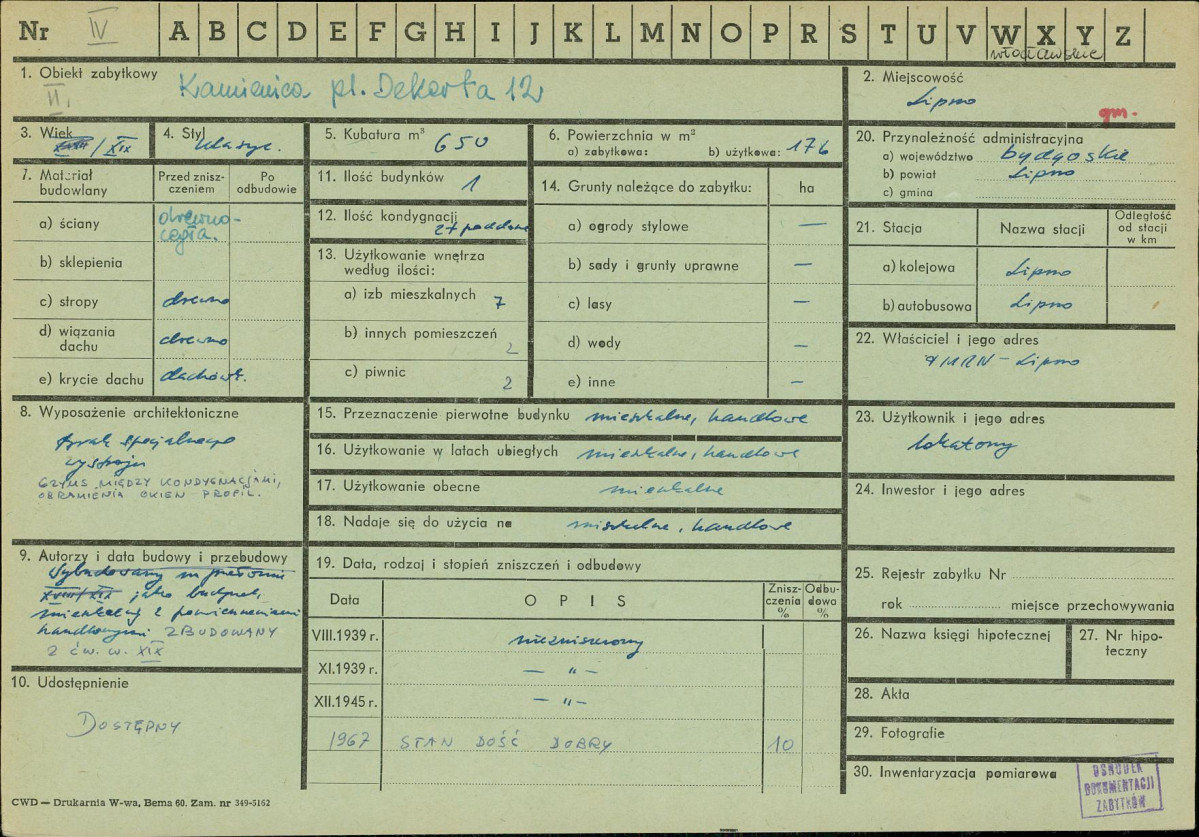 Nr IV A B C D E F G H I J K L M N O P R S T U V W X Y Z
włocławskie
1. Obiekt zabytkowy
II.
Kamienica pl. Dekerta 12
2. Miejscowość
Lipno
gm.
3. Wiek
XVIII/XIX
4. Styl
klasyc.
5. Kubatura m³ 650
6. Powierzchnia w m²
a) zabytkowa: b) użytkowa: 176
20. Przynależność administracyjna
a) województwo bydgoskie
b) powiat Lipno
c) gmina
7. Materiał budowlany
Przed zniszczeniem
Po odbudowie
a) ściany drewno-
cegła.
b) sklepienia
c) stropy drewno
d) wiązania dachu drewno
e) krycie dachu dachówk.
11. Ilość budynków 1
12. Ilość kondygnacji
2+poddasze
13. Użytkowanie wnętrza
według ilości:
a) izb mieszkalnych 7
b) innych pomieszczeń 2
c) piwnic 2
14. Grunty należące do zabytku: ha
a) ogrody stylowe —
b) sady i grunty uprawne —
c) lasy —
d) wody —
e) inne —
21. Stacja
Nazwa stacji
Odległość
od stacji
w km
a) kolejowa Lipno
b) autobusowa Lipno
22. Właściciel i jego adres
MRN – Lipno
8. Wyposażenie architektoniczne
brak specjalnego
wystroju
GZYMS MIĘDZY KONDYGNACJAMI,
OBRAMIENIA OKIEN PROFIL.
15. Przeznaczenie pierwotne budynku mieszkalne, handlowe
16. Użytkowanie w latach ubiegłych mieszkalne, handlowe
17. Użytkowanie obecne mieszkalne
18. Nadaje się do użycia na mieszkalne, handlowe
23. Użytkownik i jego adres
lokatorzy
24. Inwestor i jego adres
9. Autorzy i data budowy i przebudowy
Wybudowany na przełomie
XVIII/XIX jako budynek
mieszkalny z pomieszczeniami
handlowymi ZBUDOWANY
2 ĆW. W. XIX
10. Udostępnienie
DOSTĘPNY
19. Data, rodzaj i stopień zniszczeń i odbudowy
Data
OPIS
Zniszczenia %
Odbudowa %
VIII.1939 r. niezniszczony
XI.1939 r. — „ —
XII.1945 r. — „ —
1967 STAN DOŚĆ DOBRY 10
25. Rejestr zabytku Nr
rok miejsce przechowywania
26. Nazwa księgi hipotecznej
27. Nr hipoteczny
28. Akta
29. Fotografie
30. Inwentaryzacja pomiarowa
OŚRODEK
DOKUMENTACJI
ZABYTKÓW
CWD — Drukarnia W-wa, Bema 60. Zam. nr 349-5162